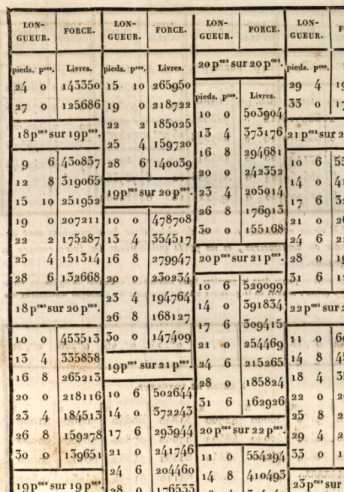 LON-
GUEUR. FORCE.
pieds. pces. Livres.
24 0 143350
27 0 125686
18 pces sur 19 pces.
9 6 430837
12 8 319065
15 10 251952
19 0 207211
22 2 175287
25 4 151314
28 6 132668
18 pces sur 20 pces.
10 0 453513
13 4 335858
16 8 265213
20 0 218116
23 4 184513
26 8 159278
30 0 139651
19 pces sur 19 pces.
LON-
GUEUR. FORCE.
pieds. pces. Livres.
15 10 265950
19 0 218722
22 2 185025
25 4 159720
28 6 140039
19 pces sur 20 pces.
10 0 478708
13 4 354517
16 8 279947
20 0 230234
23 4 194764
26 8 168127
30 0 147409
19 pces sur 21 pces.
10 6 502644
14 0 372243
17 6 293944
21 0 241746
24 6 204460
28 0 176533
LON-
GUEUR. FORCE.
20 pces sur 20 pces.
pieds. pces. Livres.
10 0 503904
13 4 373176
16 8 294681
20 0 242352
23 4 205014
26 8 176913
30 0 155168
20 pces sur 21 pces.
10 6 529099
14 0 391834
17 6 309415
21 0 254469
24 6 215265
28 0 185824
31 6 162926
20 pces sur 22 pces.
11 0 554294
14 8 410493
LON-
GUEUR.
pieds. pces.
29 4
33 0
21 pces sur
10 6
14 0
17 6
21 0
24 6
28 0
31 6
22 pces sur
11 0
14 8
18 4
22 0
25 8
29 4
33 0
23 pces sur